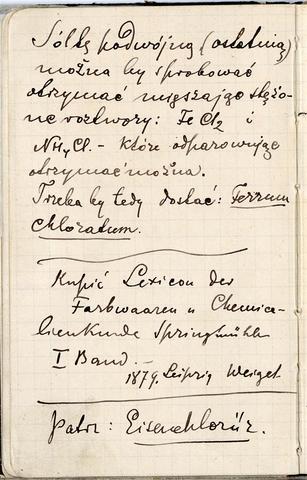 Sól tę podwójną (ostatnią)
można by spróbować
otrzymać mięszając stężo-
ne roztwory: FeCl2 i
NH4Cl. – które odparowując
otrzymać można.
Trzeba by tedy dostać: Ferrum
chloratum.
Kupić Lexicon der
Farbwaaren u Chemica-
lienkunde Springmühl
I Band. –
1879. Leipzig Weigel
patrz: Eisenchlorür.